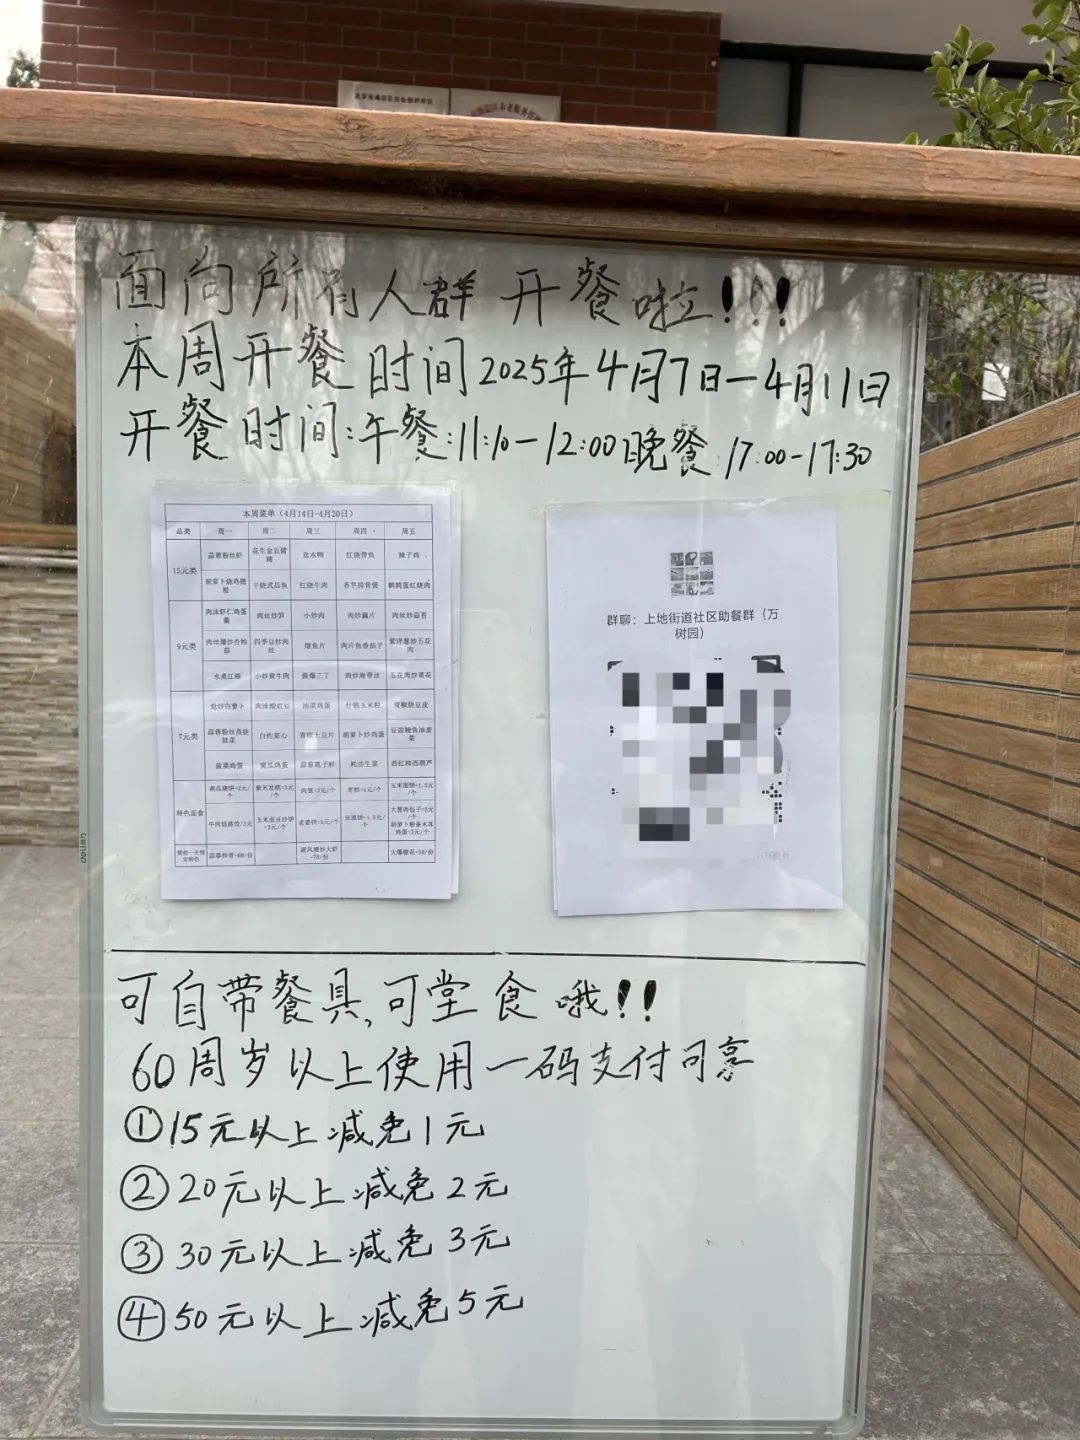 面向所有人群开餐啦!!!
本周开餐时间2025年4月7日—4月11日
开餐时间:午餐:11:10—12:00晚餐17:00-17:30
本周菜单（4月14日-4月20日）
品类 周一 周二 周三 周四 周五
15元类
蒜蓉粉丝虾 花生金豆猪蹄 盐水鸭 红烧带鱼 辣子鸡
胡萝卜烧鸡翅根 干烧武昌鱼 红烧牛肉 香芋排骨煲 鹌鹑蛋红烧肉
9元类
肉沫虾仁鸡蛋羹 肉丝炒笋 小炒肉 肉炒藕片 肉丝炒蒜苔
肉丝爆炒杏鲍菇 四季豆炒肉丝 熘鱼片 肉片鱼香茄子 紫洋葱炒五花肉
小炒黄牛肉 酱爆三丁 肉炒海带丝 五花肉炒菜花
7元类
肉沫酸豇豆 油菜鸡蛋 什锦玉米粒 青椒烧豆皮
蒜蓉粉丝蒸娃娃菜 白灼菜心 青椒土豆片 胡萝卜炒鸡蛋 豆豉鲮鱼油麦菜
菠菜鸡蛋 黄瓜鸡蛋 蒜蓉茼子秆 耗油生菜 西红柿西葫芦
特色面食
南瓜烧饼-2元/个 紫米发糕-3元/个 肉龙-3元/个 枣糕-4元/个 玉米面饼-1.5元/个
牛肉锅盔馍/3元 老婆饼-3元/个 豆渣饼-1.5元/个 大葱肉包子-3元/个
胡萝卜粉条木耳鸡蛋-3元/个
蒜香排骨-68/份 避风塘炒大虾-78/份 火爆腰花-58/份
群聊：上地街道社区助餐群（万
树园）
deli得力
可自带餐具,可堂食哦!!
60周岁以上使用一码支付可享
①15元以上减免1元
②20元以上减免2元
③30元以上减免3元
④50元以上减免5元